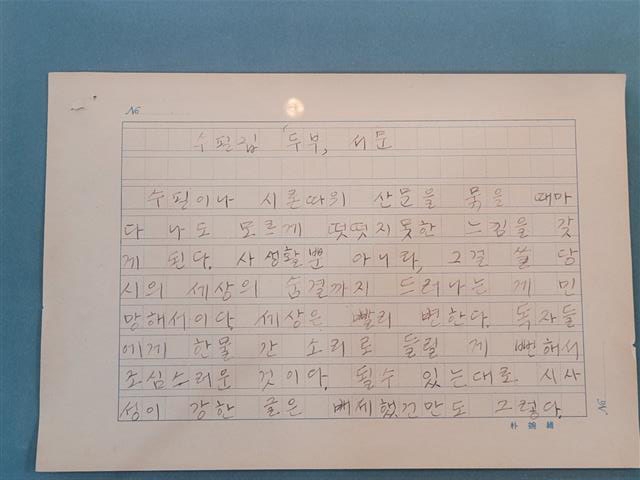 No
수필집 「두부」 서문
수필이나 시론따위 산문을 묶을 때마
다 나도 모르게 떳떳지못한 느낌을 갖
게 된다. 사생활뿐 아니라, 그걸 쓸 당
시의 세상의 숨결까지 드러나는 게 민
망해서이다. 세상은 빨리 변한다. 독자들
에게 한물 간 소리로 들릴 게 뻔해서
조심스러운 것이다. 될수 있는대로 시사
성이 강한 글은 빼제했건만도 그렇다.
朴婉緖
No